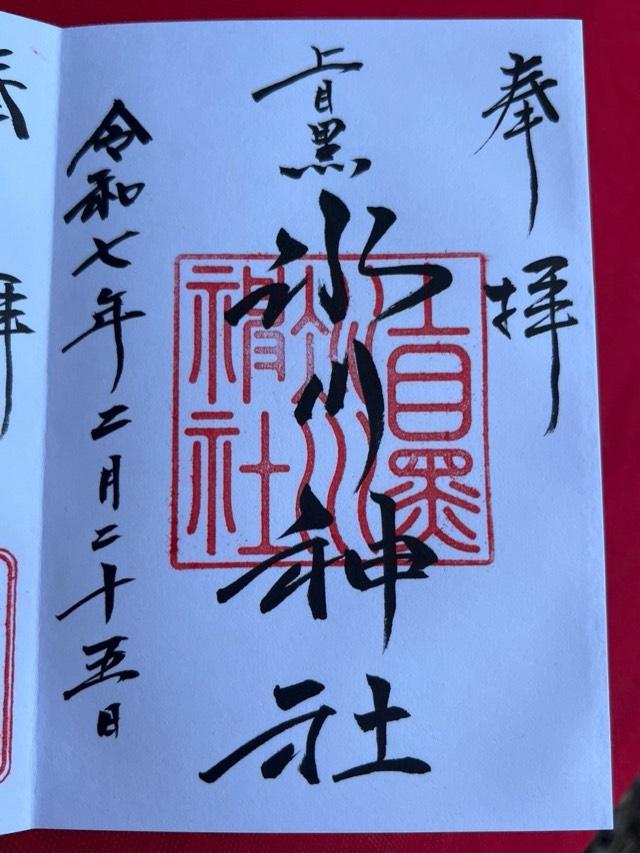 奉拝
上目黒
氷川神社
上目黒
氷川
神社
令和七年二月二十五日
奉
拝